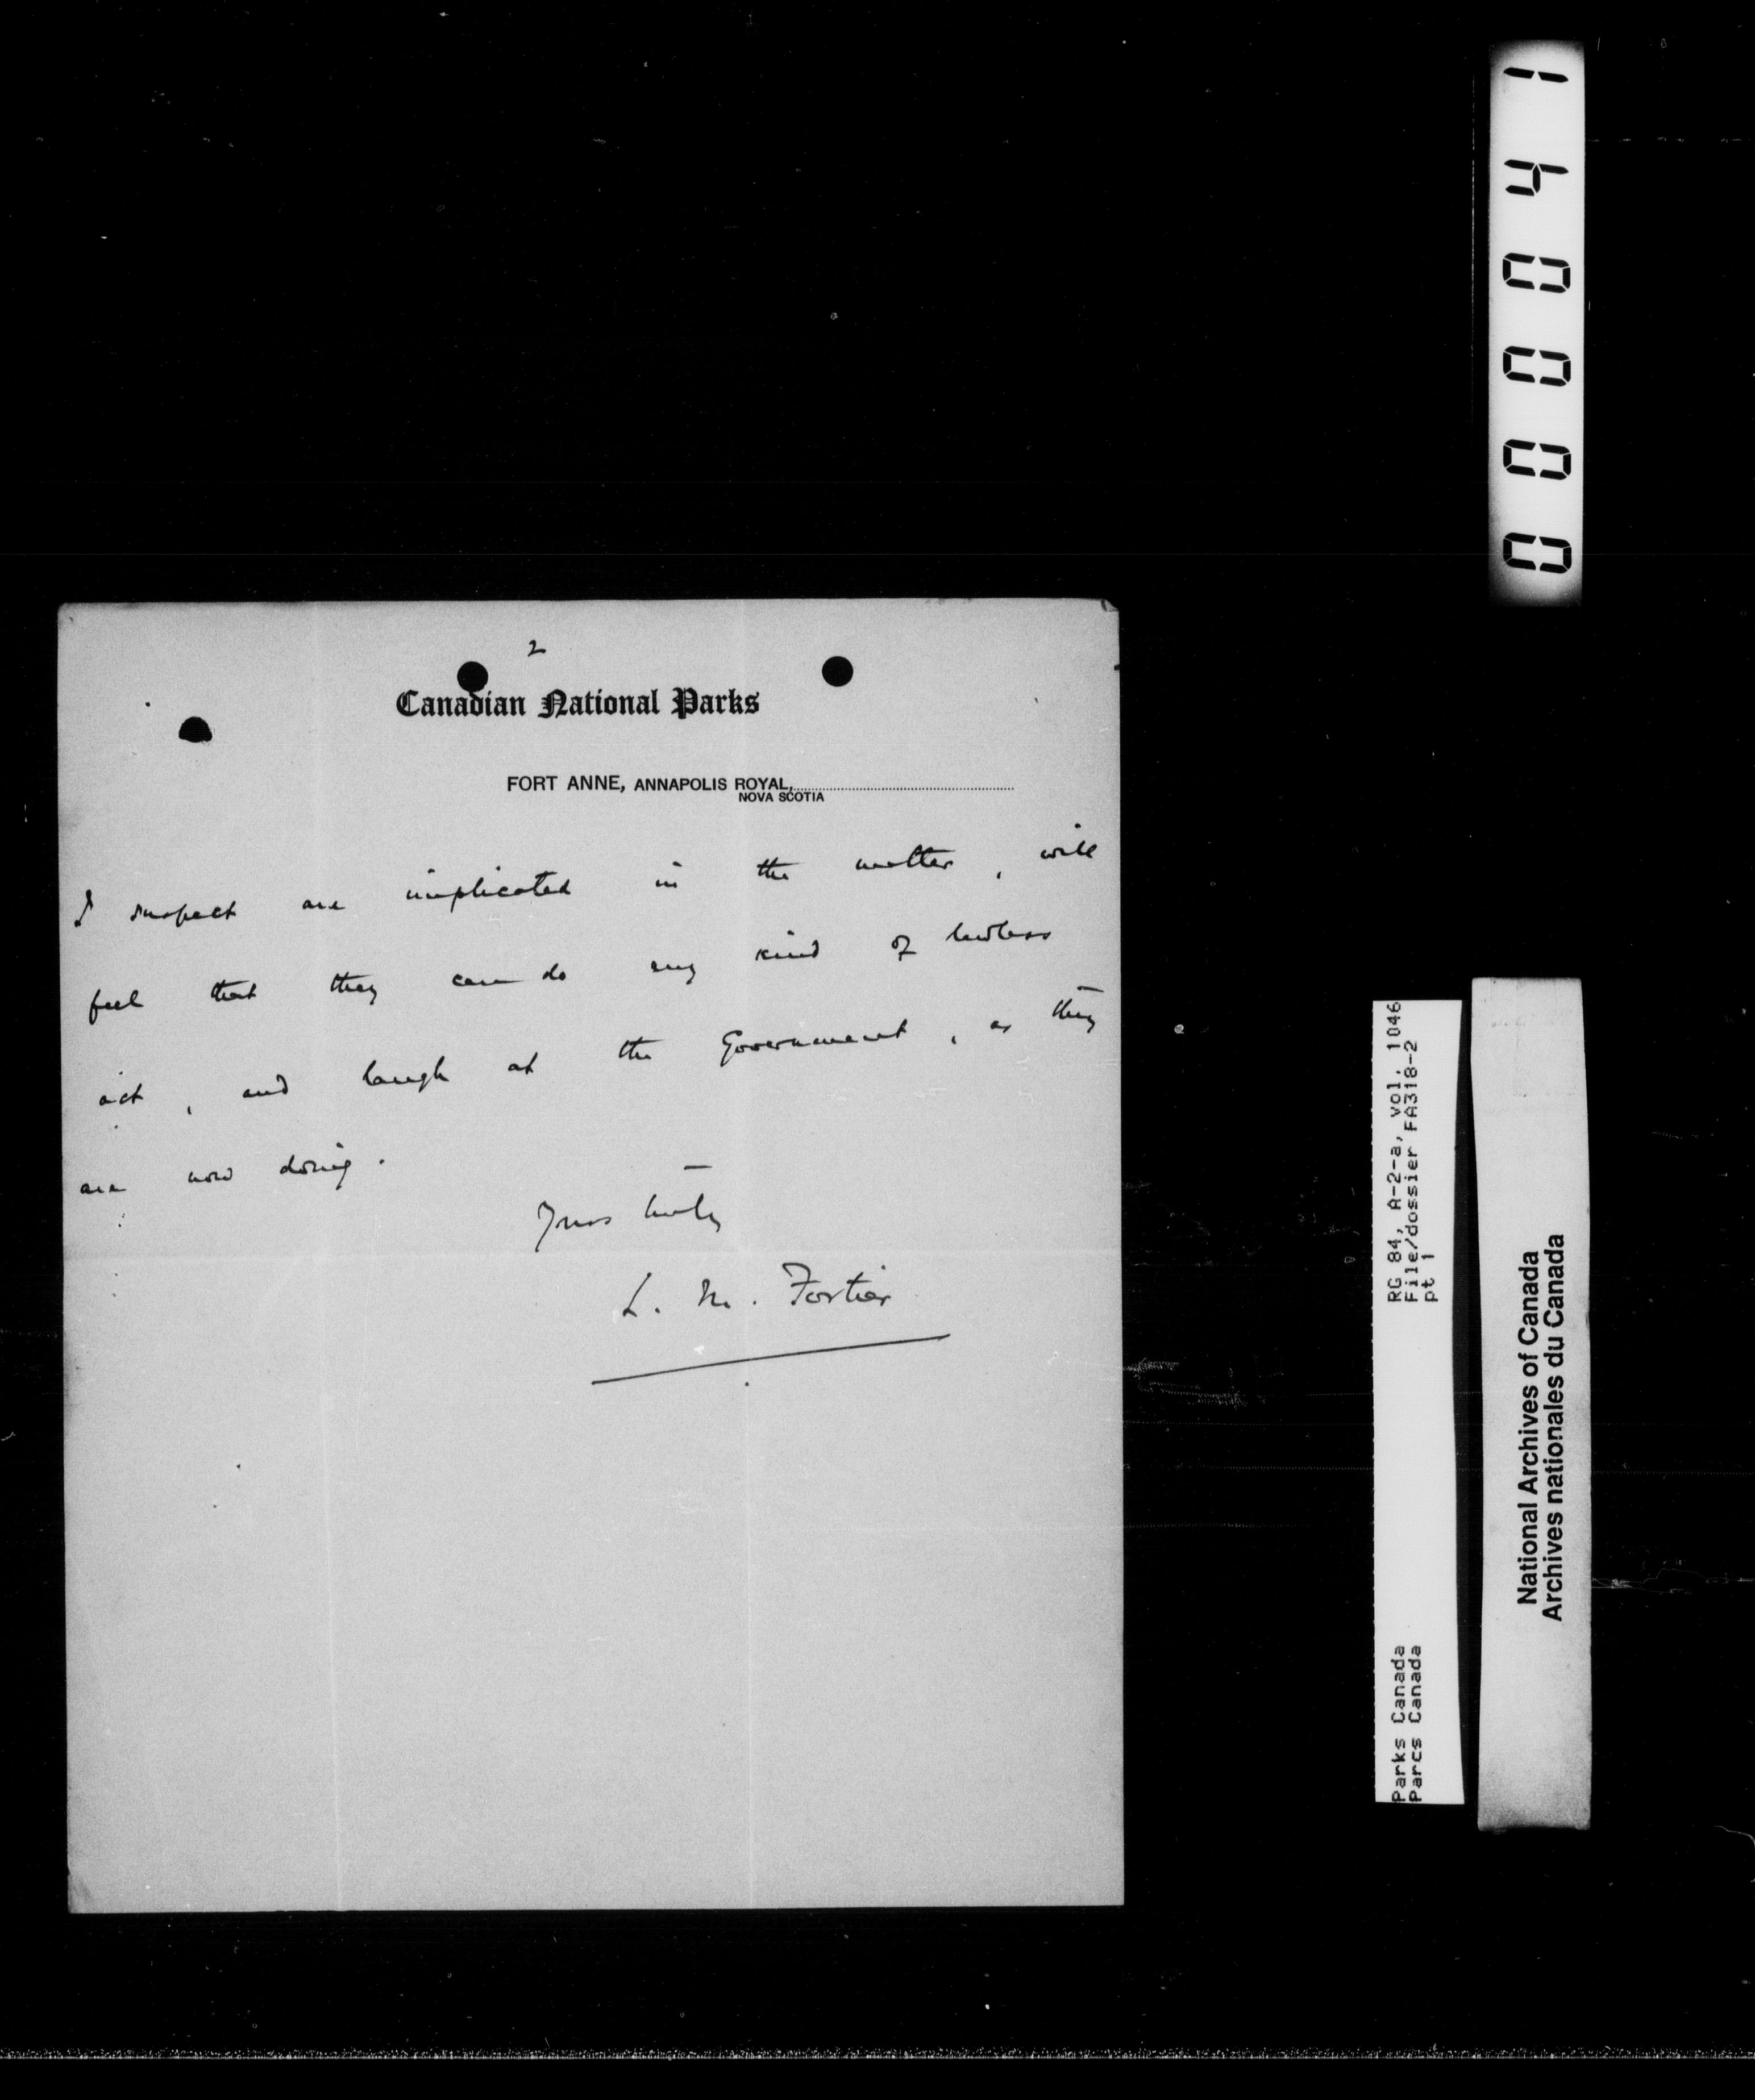 2
Canadian National Parks
FORT ANNE, ANNAPOLIS ROYAL,
NOVA SCOTIA
I suspect are implicated in the matter, will
feel that they can do any kind of lawless
act, and laugh at the Government, as they
are now doing.
Yours truly
L. M. Fortier
000041
RG 84, A-2-a, Vol. 1046
File/dossier FA318-2
pt 1
Parks Canada
Parcs Canada
National Archives of Canada
Archives nationales du Canada